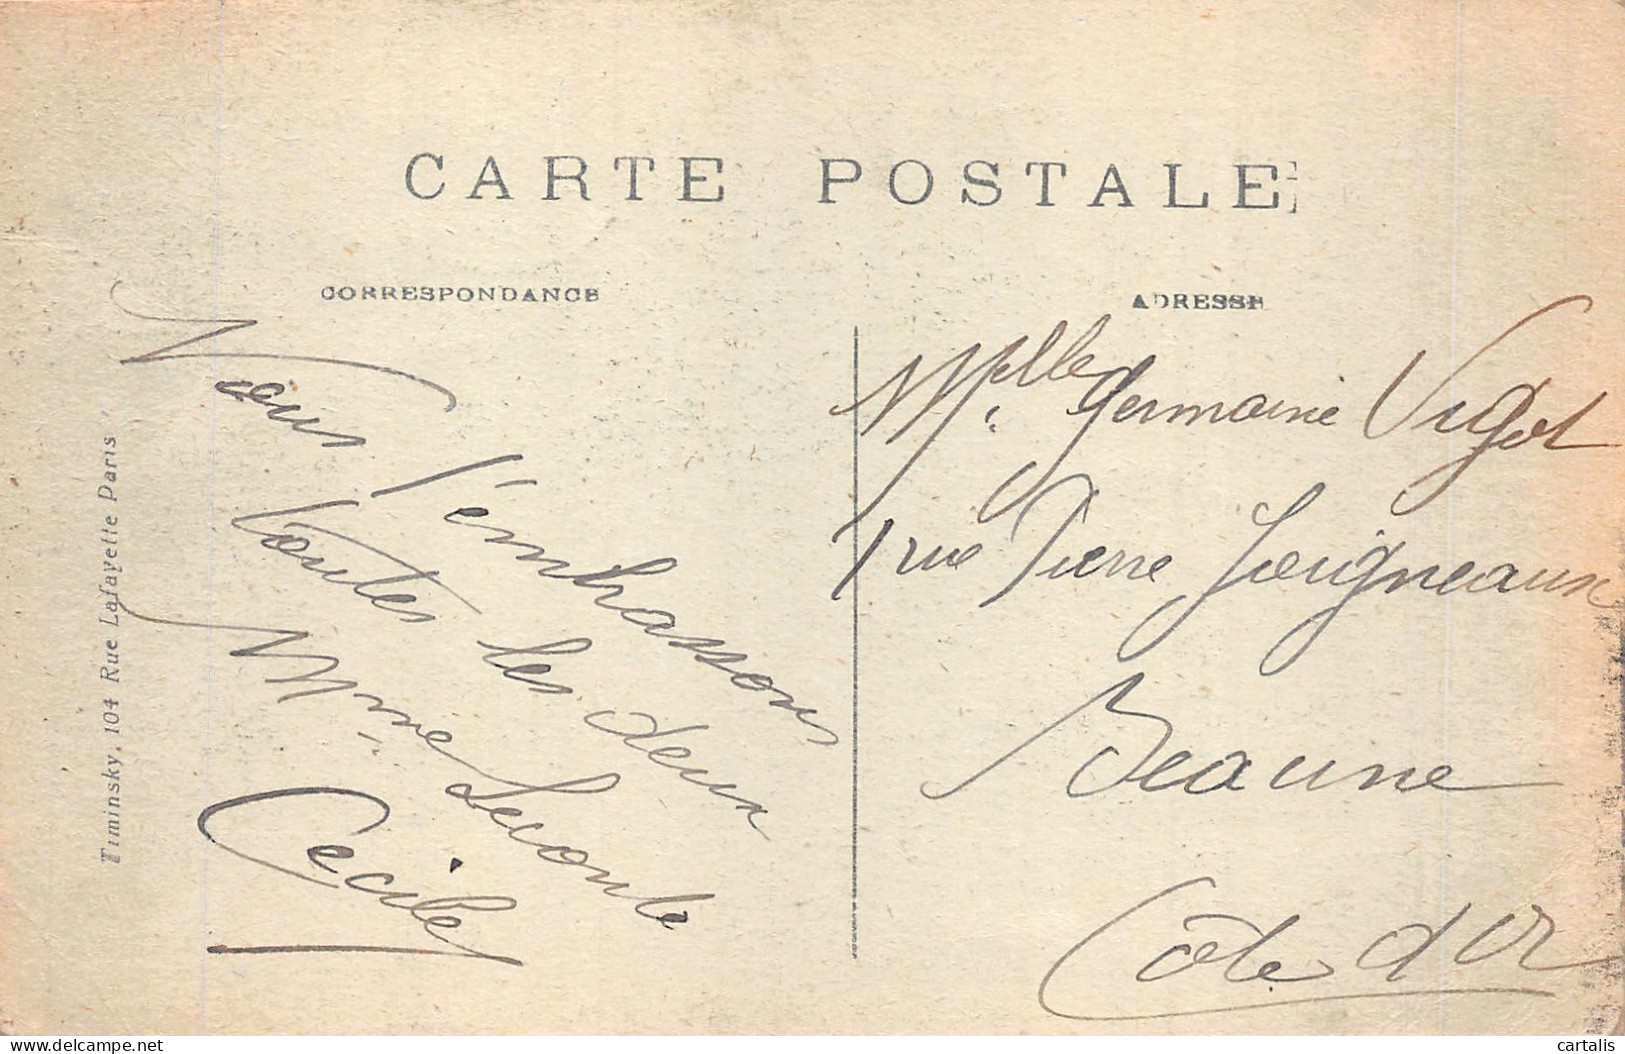 CARTE POSTALE
CORRESPONDANCE
ADRESSE
Nous t'embrassons
toutes les deux
Mme Lecomte
Cecile
Melle Germaine Vigot
1 rue Pierre Joigneaux
Beaune
Côte d'Or
Timinsky, 104 Rue Lafayette Paris
delcampe.net
cartalis